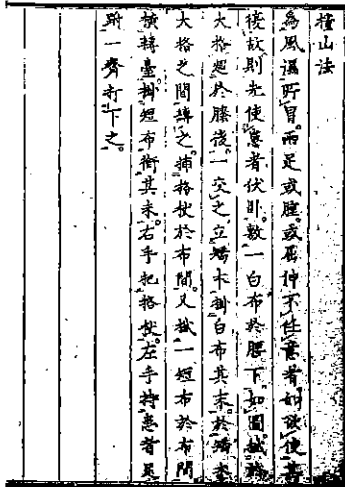 撞山法
為風濕所冒。兩足或腫。或屈伸不任意者。如欲使其
復故。則先使患者伏臥。敷一白布於腰下。如圖。
大格。起於膝後。一交之。立矯木。掛白布其末。於矯木
大格之間縛之。插格杖於布間。又 一短布於布間
橫轉臺。掛短布銜其末。右手把格杖。左手持患者足
跗一齊打下之。